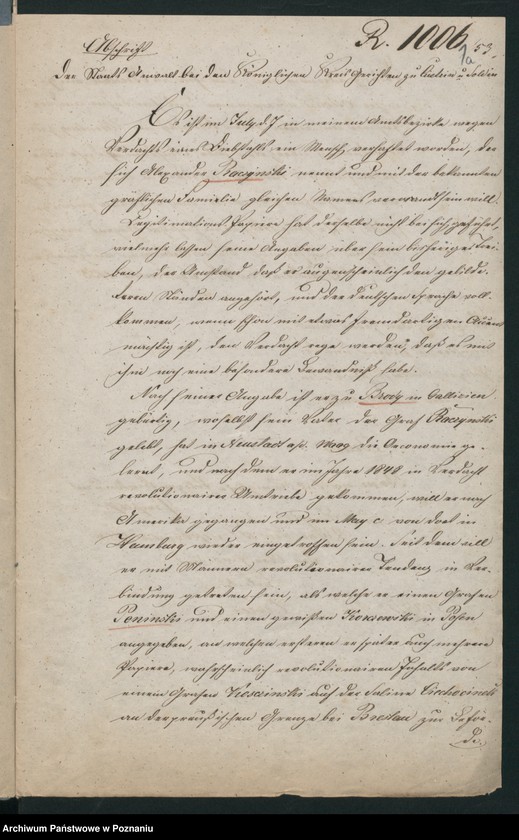 R. 1006
1a
53
Abschrift
Der Staats Anwalt bei den Königlichen Kreis Gerichten zu Cüstrin u Soldin
Es ist im July d. J. in meinem Amtsbezirke wegen
Verdachts eines Diebstahls ein Mensch verhaftet worden, der
sich Alexander Raczynski nennt und mit der bekannten
gräflichen Familie gleichen Namens verwandt sein will.
Legitimations Papiere hat derselbe nicht bei sich geführt,
vielmehr lassen seine Angaben über sein bisheriges Trei-
ben, der Umstand daß er augenscheinlich den gebilde-
teren Ständen angehört, und der deutschen Sprache voll-
kommen, wenn schon mit etwas fremdartigem Accent
mächtig ist, den Verdacht rege werden, daß es mit
ihm noch eine besondere Bewandniß habe.
Nach seiner Angabe ist er zu Brody in Gallizien
gebürtig, woselbst sein Vater der Graf Raczynski
gelebt, hat in Neustadt a/. Waag die Oeconomie ge-
lernt, und nachdem er im Jahre 1848 in Verdacht
revolutionairer Umtriebe gekommen, will er nach
Amerika gegangen und im May c von dort in
Hamburg wieder eingetroffen sein. Seitdem will
er mit Männern revolutionairer Tendenz in Ver-
bindung getreten sein, als welche er einen Grafen
Poninski und einen gewissen Kosczewski in Posen
angegeben, an welchen ersteren er später auch mehrere
Papiere, wahrscheinlich revolutionairen Inhalts von
einem Grafen auf der Saline
an der preußischen Grenze bei Breslau zur Beför-
de
Archiwum Państwowe w Poznaniu